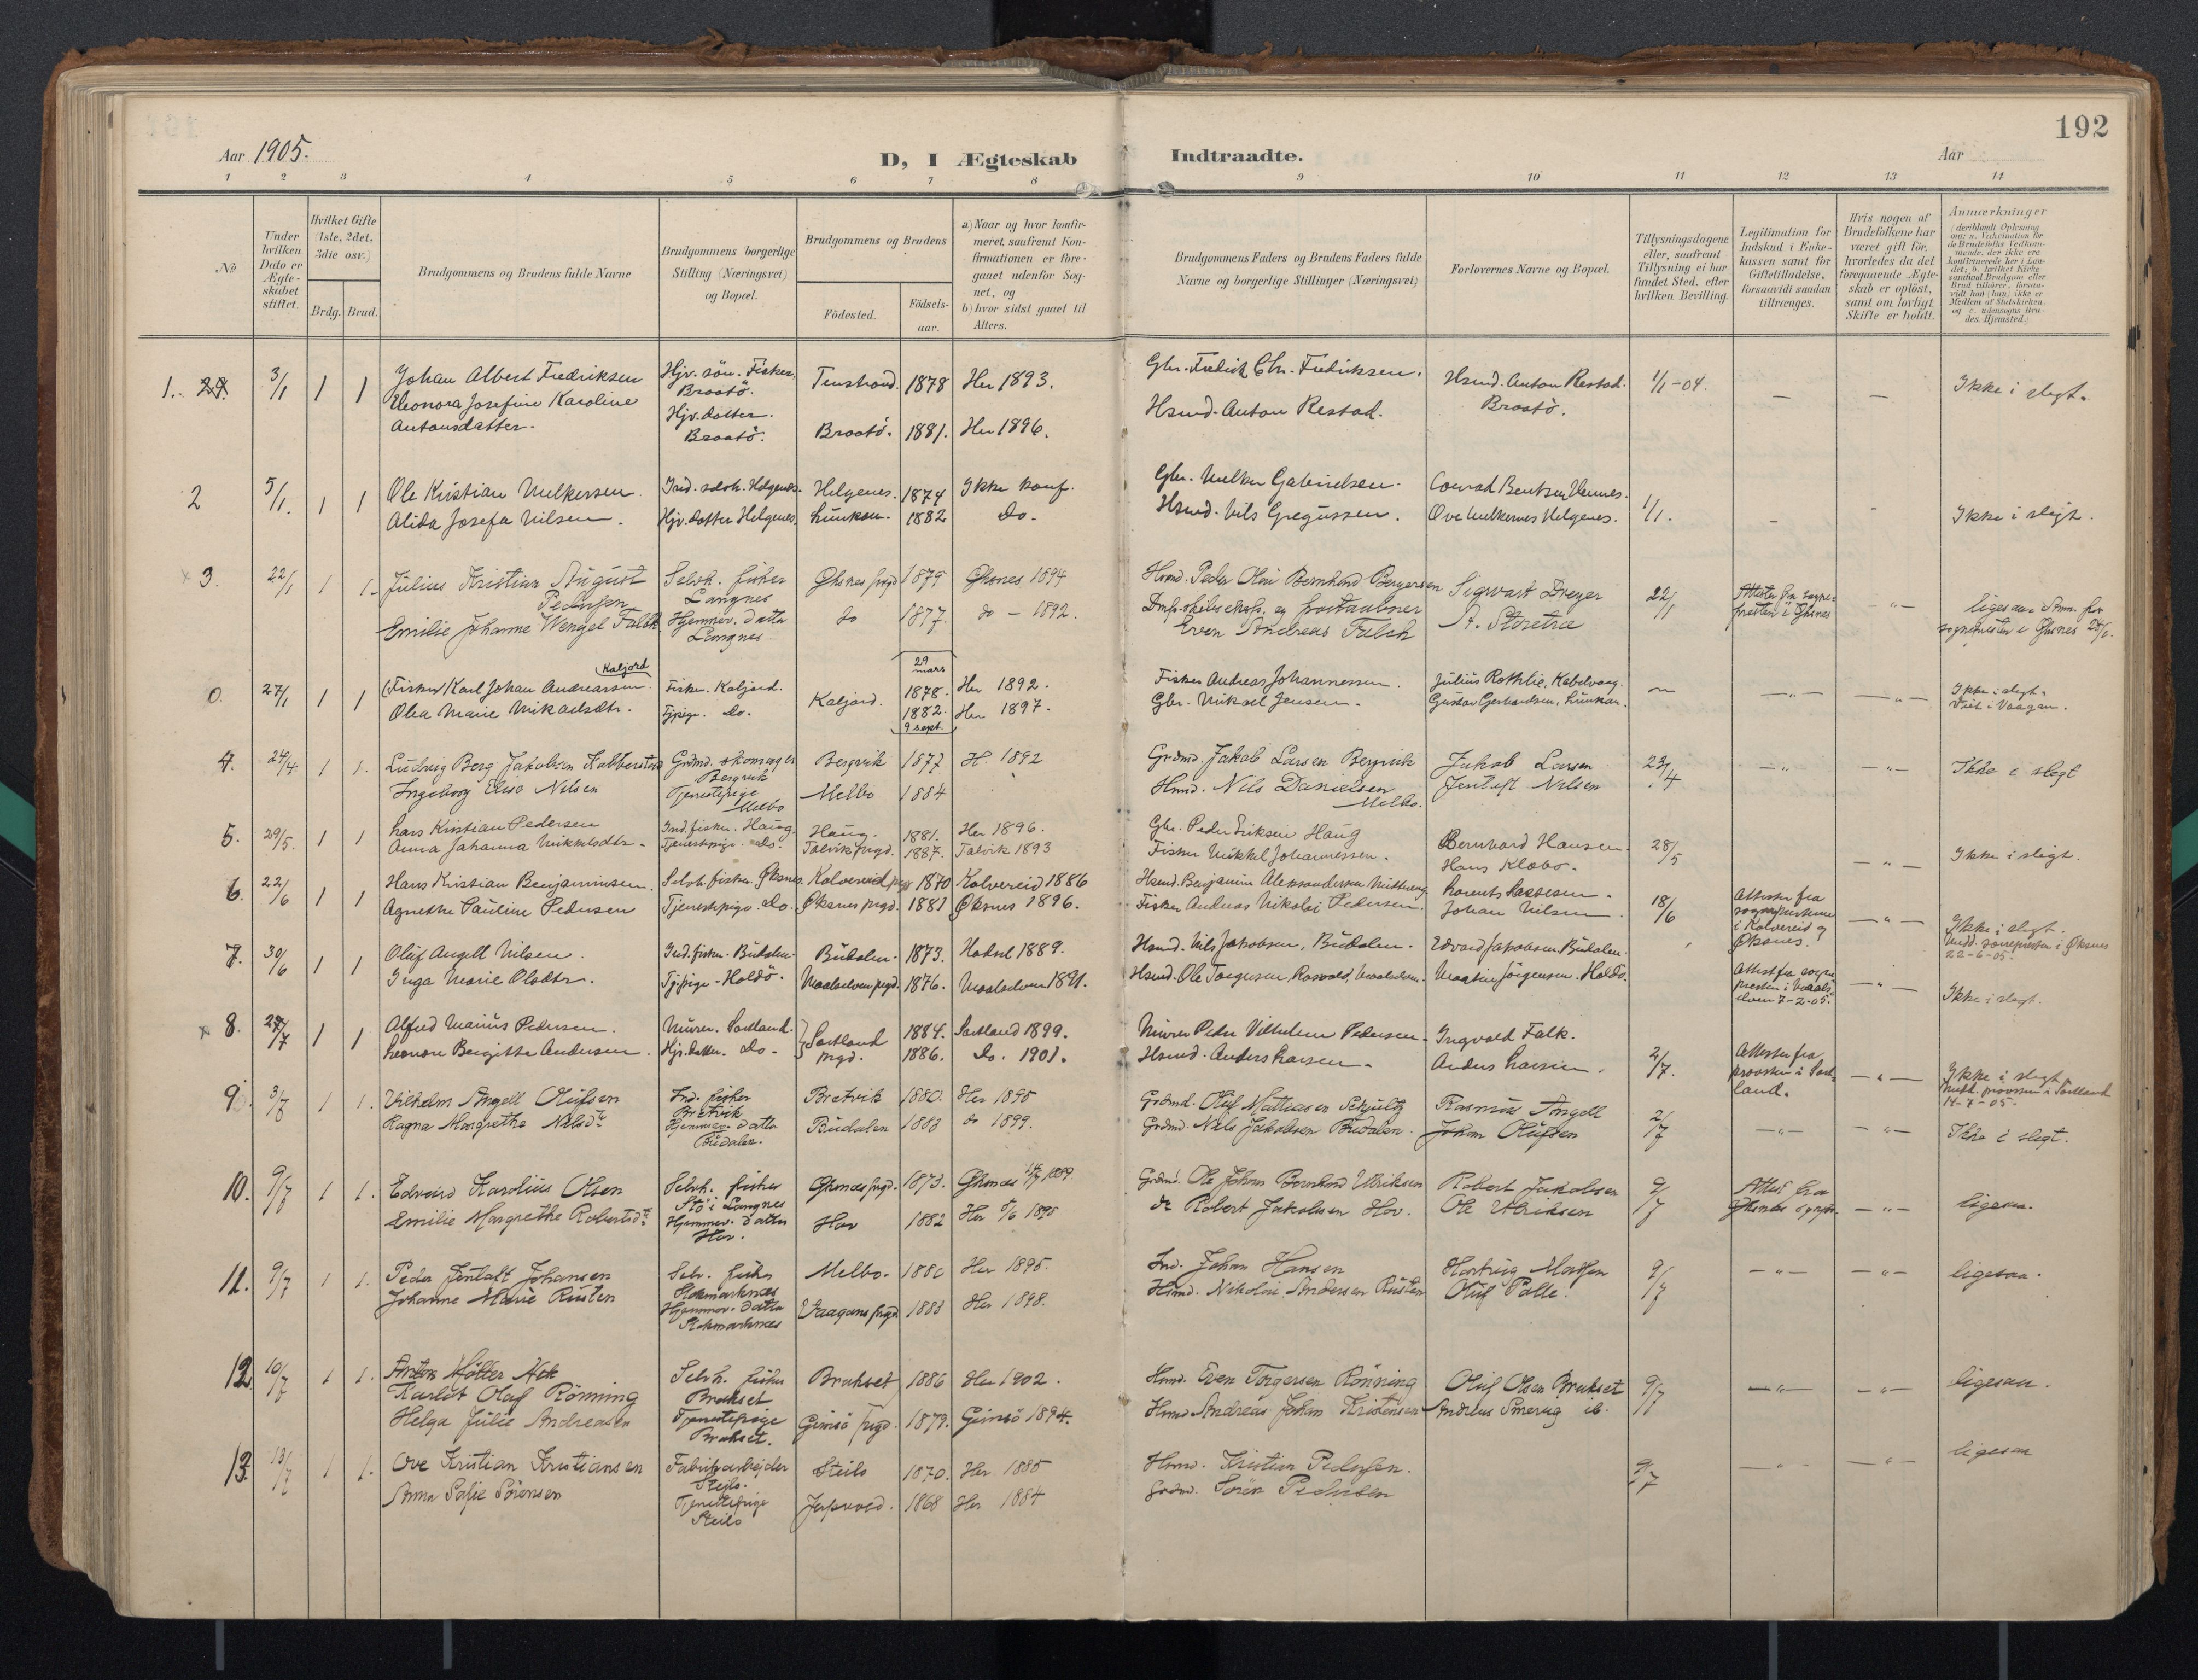 192
Aar 1905.
D, I Ægteskab Indtraadte.
Aar
1 2 3 4 5 6 7 8 9 10 11 12 13 14
No
Under hvilken Dato er Ægteskabet stiftet.
Hvilket Gifte (1ste, 2det, 3die osv.)
Brdg. Brud.
Brudgommens og Brudens fulde Navne
Brudgommens borgerlige Stilling (Næringsvei) og Bopæl.
Brudgommens og Brudens
Födested.
Födselsaar.
a) Naar og hvor konfirmeret, saafremt Konfirmationen er foregaaet udenfor Sognet, og
b) hvor sidst gaaet til Alters.
Brudgommens Faders og Brudens Faders fulde Navne og borgerlige Stillinger (Næringsvei)
Forlovernes Navne og Bopæl.
Tillysningsdagene eller, saafremt Tillysning ei har fundet Sted, efter hvilken Bevilling.
Legitimation for Indskud i Enkekassen samt for Giftetilladelse, forsaavidt saadan tiltrænges.
Hvis nogen af Brudefolkene har været gift för, hvorledes da det foregaaende Ægteskab er oplöst, samt om lovligt Skifte er holdt.
Anmærkninger
1. 29. 3/1 1 1 Johan Albert Fredriksen Hjv. sön. Fisker. Brostö. 1878 Her 1893. Gbr. Fredrik Chr. Fredriksen. Hsmd. Anton Restad. Brostö. 1/1-04. — — Ikke i slegt.
Eleonora Josefine Karoline Antonsdatter. Hjv. datter. Brostö. Brostö. 1881. Her 1896. Hsmd. Anton Restad.
2 5/1. 1 1 Ole Kristian Melkersen. Ind. selvh. Helgenes. Helgenes. 1874 Ikke konf. Gbr. Melker Gabrielsen. Conrad Bentzen Vennes. 1/1. - - Ikke i slegt.
Alida Josefa Nilsen. Hjv. datter Helgenes. Lunkan. 1882 do. Hsmd. Nils Gregussen. Ove Melkersen Helgenes.
3. 22/1 1 1. Julius Kristian August Pedersen Selvh. fisker Langnes Øksnes prgd 1879 Øksnes 1894 Hsmd. Peder Olai Bernhard Bergersen Sigvart Dreyer 22/1 Attester fra sognepresten i Øksnes —"— ligesaa. Anm. for sognepresten i Øksnes 24/1.
Emilie Johanne Wengel Falch Hjemmev. datter Langnes do 1877. do - 1892. Dmpskibseksp. og postaabner Even Andreas Falch A. Storetræ
0. 27/1 1 1 (Fisker Karl Johan Andreassen. Kaljord Fisker. Kaljord. Kaljord. 29 mars 1878. Her 1892. Fisker Andreas Johannessen. Julius Rothlie, Kabelvaag. — —"— —"— Ikke i slegt. Viet i Vaagan.
Olea Marie Mikaelsdtr. Tjpige. do. 1882. 9 sept. Her 1897. Gbr. Mikael Jensen. Gustav Gerhardsen, Lunkan.
4. 24/4 1 1. Ludvig Berg Jakobsen Kobberstad Grdmd. skomager Bergvik Bergvik 1877 H. 1892 Grdmd. Jakob Larsen Bergvik Jakob Larsen 23/4 —"— —"— Ikke i slegt
Ingeborg Elise Nilsen Tjenestepige Melbo Melbo 1884 Hsmd. Nils Danielsen Melbo. Jentoft Nilsen
5. 29/5. 1 1 Lars Kristian Pedersen Ind. fisker. Haug. Haug. 1881. Her 1896. Gbr. Peder Eriksen Haug Bernhard Hansen. 28/5 —"— Ikke i slegt.
Anna Johanna Mikkelsdtr. Tjenestepige. do. Talvik prgd. 1887. Talvik 1893 Fisker Mikkel Johannessen. Hans Klobo.
6. 22/6 1 1 Hans Kristian Benjaminsen. Selvh. fisker. Øksnes. Kolvereid prgd 1870 Kolvereid 1886 Hsmd. Benjamin Aleksandersen Lorents Lassesen. 18/6 Attester fra sognepresterne i Kolvereid og Øksnes. —"— Ikke i slegt. Medd. sognepresten i Øksnes 22-6-05.
Agnethe Pauline Pedersen Tjenestepige. do. Øksnes prgd. 1881 Øksnes 1896. Fisker Andreas Nikolai Pedersen. Johan Nilsen
7. 30/6 1 1 Oluf Angell Nilsen. Ind. fisker. Budalen. Budalen. 1873. Hadsel 1889. Hsmd. Nils Jakobsen, Budalen. Edvard Jakobsen Budalen.
Inga Marie Olsdtr. Tjpige. Holdö. Maalselven prgd. 1876. Maalselven 1891. Hsmd. Ole Torgersen, Maalselven. Martin Jörgensen. Holdö. Attest fra sognepresten i Maalselven 7-2-05. —"— Ikke i slegt.
8. 1 1 Alfred Marius Pedersen. Murer. Sortland. Sortland prgd. 1884. Sortland 1899. Murer Peder Vilhelm Pedersen. Ingvald Falk. 2/7. Attester fra provsten i Sortland. —"— Ikke i slegt. Medd. provsten i Sortland 14-7-05.
Leonore Bergitte Andersen. Hjv. datter. do. 1886. do. 1901. Hsmd. Anders Larsen. Anders Larsen.
9. 3/7 1 1. Vilhelm Angell Olufsen Ind. fisker Bretvik Bretvik 1880. Her 1895 Grdmd. Oluf Mathiasen Schjultz Rasmus Angell 2/7 —"— —"— Ikke i slegt.
Ragna Margrethe Nilsdtr Hjemmev. datter Budalen. Budalen 1883 do 1899. Grdmd. Nils Jakobsen Budalen. Johan Olufsen
10. 9/7 1 1. Edvard Karolius Olsen Selvh. fisker Stö i Langnes Øksnes prgd. 1873. Øksnes 1889. Grdmd. Ole Johan Bernhard Ulriksen Robert Jakobsen 9/7 Attest fra Øksnes —"— ligesaa.
Emilie Margrethe Robertsdtr Hjemmev. datter Hov. Hov 1882 Her 1895 do Robert Jakobsen Hov. Ole Ulriksen
11. 9/7 1 1. Peder Jentoft Johansen Selv. fisker Stokmarknes Melbo. 1880 Her 1895. Ind. Johan Hansen Hartvig 9/7 —"— —"— ligesaa.
Johanne Marie Rusten Hjemmev. datter Stokmarknes Vaagans prgd. 1883 Her 1898. Hsmd. Nikolai Andersen Rusten Oluf Polle.
12. 10/7 1 1. Karlot Olaf Rönning Selvh. fisker Brakset Brakset 1886 Her 1902. Hsmd. Even Torgersen Rönning Oluf Olsen Brakset 9/7 —"— —"— ligesaa.
Helga Julie Andreasen Tjenestepige Brakset. Gimsö prgd. 1873. Gimsö 1894. Hsmd Andreas Johan Kristensen Andreas ib.
13. 13/7 1 1. Ove Kristian Kristiansen Fabrikarbejder Steilo. Steilo 1870. Her. 1885 Hsmd. Kristian Pedersen. 9/7 —"— —"— ligesaa
Anna Sofie Sörensen Tjenestepige Steilo 1868 Her 1884 Grdmd. Sören Pedersen